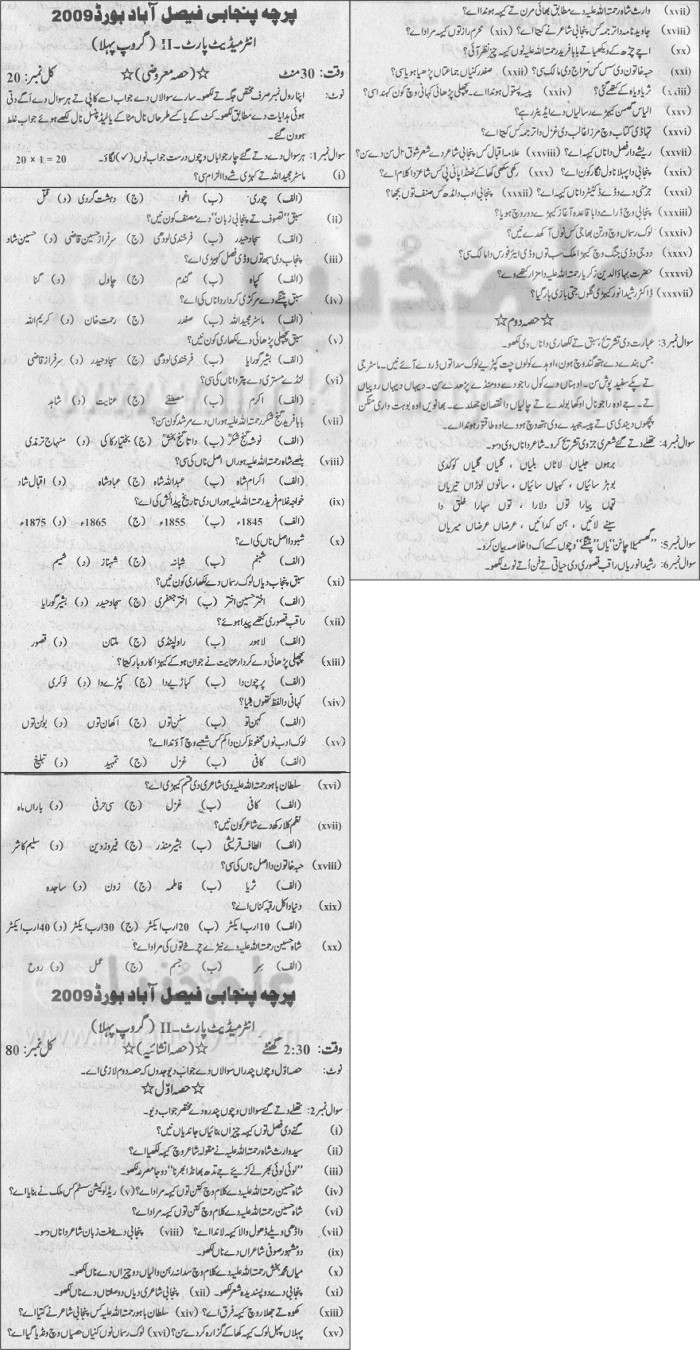 پرچہ پنجابی فیصل آباد بورڈ 2009
انٹرمیڈیٹ پارٹ۔ II (گروپ پہلا)
وقت: 30 منٹ ☆(حصہ معروضی)☆ کل نمبر: 20
نوٹ: اپنا رول نمبر صرف مختص جگہ تے لکھو۔ سارے سوالاں دے جواب اسے کاپی تے ہر سوال دے اگے دتی
ہوئی ہدایات دے مطابق لکھو۔ کٹ کے یا کسے طرحاں نال مٹا کے یا لیڈ پنسل نال لکھے ہوئے جواب غلط
ہوون گے۔
سوال نمبر 1: ہر سوال دے دتے گئے چار جواباں وچوں درست جواب نوں (✓) لگاؤ۔ 20 x 1 = 20
(i) ماسٹر مجید اللہ تے کہڑی شے دا الزام سی؟
(الف) چوری (ب) اغوا (ج) دہشت گردی (د) قتل
(ii) سبق "تصوف تے پنجابی زبان" دے مصنف کون نیں؟
(الف) سجاد حیدر (ب) فرخندی لودھی (ج) سرفراز حسین قاضی (د) حسین شاد
(iii) پنجاب دی سبھ توں وڈی فصل کہڑی اے؟
(الف) کپاہ (ب) گندم (ج) چاول (د) گنا
(iv) سبق پنگے دے مرکزی کردار دا ناں کی اے؟
(الف) ماسٹر مجید اللہ (ب) صفدر (ج) رحمت خان (د) کریم اللہ
(v) سبق پچھلی پڑھائی دے لکھاری کون نیں؟
(الف) بشیر گورایا (ب) فرخندی لودھی (ج) سجاد حیدر (د) سرفراز قاضی
(vi) لنڈے مستری دے پتر دا ناں کی سی؟
(الف) اکرم (ب) مصطفےٰ (ج) عنایت (د) شاہد
(vii) بابا فرید گنج شکر رحمتہ اللہ علیہ ہوراں دے مرشد کون سن؟
(الف) نوشہ گنج شکر (ب) داتا گنج بخش (ج) بختیار کاکی (د) منہاج ترمذی
(viii) بلھے شاہ رحمتہ اللہ علیہ ہوراں اصل ناں کی سی؟
(الف) اکرام شاہ (ب) عبداللہ شاہ (ج) عباد شاہ (د) اقبال شاد
(ix) خواجہ غلام فرید رحمتہ اللہ علیہ ہوراں دی تاریخ پیدائش کی اے؟
(الف) 1845ء (ب) 1855ء (ج) 1865ء (د) 1875ء
(x) شبو دا اصل ناں کی اے؟
(الف) شبنم (ب) شبانہ (ج) شہناز (د) شمیم
(xi) سبق پنجاب دیاں لوک رسماں دے لکھاری کون نیں؟
(الف) اختر حسین اختر (ب) اختر جعفری (ج) سجاد حیدر (د) بشیر گورایا
(xii) راقب قصوری کتھے پیدا ہوئے؟
(الف) لاہور (ب) راولپنڈی (ج) ملتان (د) قصور
(xiii) پچھلی پڑھائی دے کردار عنایت نے جوان ہو کے کیہڑا کاروبار کیتا؟
(الف) پرچون دا (ب) کباڑیے دا (ج) کپڑے دا (د) نوکری
(xiv) کہانی دا لفظ کتھوں بنیا؟
(الف) کہن تو (ب) سنن توں (ج) اکھان توں (د) بولن توں
(xv) لوک ادب نوں محفوظ کرن دا کم کس شعبے وچ آؤندا اے؟
(الف) کافی (ب) غزل (ج) تمہید (د) تبلیغ
(xvi) سلطان باہو رحمتہ اللہ علیہ دی شاعری دی قسم کیہڑی اے؟
(الف) کافی (ب) غزل (ج) سی حرفی (د) باراں ماہ
(xvii) نظم کلا رکھ دے شاعر کون نیں؟
(الف) الطاف قریشی (ب) بشیر منذر (ج) فیروز دین (د) سلیم کاشر
(xviii) حبہ خاتون دا اصل ناں کی سی؟
(الف) ثریا (ب) فاطمہ (ج) زون (د) ساجدہ
(xix) دنیا دا کل رقبہ کناں اے؟
(الف) 10ارب ایکٹر (ب) 20ارب ایکٹر (ج) 30ارب ایکٹر (د) 40ارب ایکٹر
(xx) شاہ حسین رحمتہ اللہ علیہ دے نیڑے چرخے توں کی مراد اے؟
(الف) سر (ب) جسم (ج) عمل (د) روح
پرچہ پنجابی فیصل آباد بورڈ 2009
انٹرمیڈیٹ پارٹ۔ II (گروپ پہلا)
وقت: 2:30 گھنٹے ☆(حصہ انشائیہ)☆ کل نمبر: 80
نوٹ: حصہ اوّل وچوں پندراں سوالاں دے جواب دیو جدوں کہ حصہ دوم لازمی اے۔
☆حصہ اوّل☆
سوال نمبر 2: تھلے دتے گئے سوالاں وچوں پندرہ دے مختصر جواب دیو۔
(i) گنے دی فصل توں کیہہ چیزاں بنائیاں جاندیاں نیں؟
(ii) سید وارث شاہ رحمتہ اللہ علیہ نے مقولہ شاعر وچ کیہہ لکھیا اے؟
(iii) "لوئی لوئی بھر لے کڑیئے جے تدھ بھانڈا بھرنا" دو جا مصرعہ لکھو۔
(iv) شاہ حسین رحمتہ اللہ علیہ دے کلام وچ کتن توں کیہہ مراد اے؟ (v) ریڈ لوکیشن سسٹم کس ملک نے بنایا اے؟
(vi) شاہ حسین رحمتہ اللہ علیہ دے کلام وچ کتن توں کیہہ مراد اے؟
(vii) واڈھی ویلے ڈھول والا کیہہ لاندا اے؟ (viii) پنجابی دے ہفت زبان شاعر دا ناں دسو۔
(ix) دو مشہور صوفی شاعراں دے ناں لکھو۔
(x) میاں محمد بخش رحمتہ اللہ علیہ دے کلام وچ سدا نہ رہن والیاں دو چیزاں دے ناں لکھو۔
(xi) پنجابی دے دو پسندیدہ شعر لکھو۔ (xii) پنجابی شاعری دیاں دو صنفاں دے ناں لکھو۔
(xiii) کھوہ تے جھلار وچ کیہہ فرق اے؟ (xiv) سلطان باہو رحمتہ اللہ علیہ کس پنجابی شاعر نے کتیا اے؟
(xv) پہلاں پہل لوک کیہہ کھا کے گزارہ کردے سن؟ (xvi) لوک رسماں نوں کنیاں حصیاں وچ ونڈیا گیا اے؟
(xvii) وارث شاہ رحمتہ اللہ علیہ دے مطابق بھائی مرن تے کیہہ ہوندا اے؟
(xviii) جاوید نامہ دا ترجمہ کس پنجابی شاعر نے کیتا اے؟ (xix) محرم راز توں کیہہ مراد اے؟
(xx) اچے چڑھ کے ویکھیا تے بابا فرید رحمتہ اللہ علیہ نوں کیہہ چیز نظر آئی؟
(xxi) حبہ خاتون دی سس کس مزاج دی مالک سی؟ (xxii) صفدر کنیاں جماعتاں پڑھیا ہویا سی؟
(xxiii) ثریا ویاہ کے کتھے گئی؟ (xxiv) پیسہ پتول ہوندا اے۔ پچھلی پڑھائی کہانی وچ کون کہندا سی؟
(xxv) الیاس گھمن کیہڑے رسالیاں دے ایڈیٹر رہے؟
(xxvi) تہاڈی کتاب وچ مرزا غالب دی غزل دا ترجمہ کس کیتا اے؟
(xxvii) ریشے دار فصل دا ناں کیہہ اے؟ (xxviii) علامہ اقبال کس پنجابی شاعر دے شعر شوق نال سن دے سن؟
(xxix) پنجابی دا پہلا ناول نگار کون اے؟ (xxx) رنگی سکھی کھا کے ٹھنڈا پانی پی کس شاعر دا کلام اے؟
(xxxi) جرمنی دے وڈے ڈکٹیٹر دا ناں کیہہ اے؟ (xxxii) پنجابی ادب دا مڈھ کس صنف توں بجھا؟
(xxxiii) پنجابی وچ ڈرامے دا باقاعدہ آغاز کیہڑے دور وچ ہویا؟
(xxxiv) لوک رسماں وچ ورتن بھاجی کس نوں آکھدے نیں؟
(xxxv) دوجی وڈی جنگ وچ کیہڑا ملک سب توں وڈی ایئر فورس دا مالک سی؟
(xxxvi) حضرت بہاؤالدین زکریا رحمتہ اللہ علیہ دا مزار کتھے وے؟
(xxxvii) ڈاکٹر رشید انور کیہڑی گلوں جتی بازی ہار گیا؟
☆حصہ دوم☆
سوال نمبر 3: عبارت دی تشریح، سبق تے لکھاری دا ناں وی لکھو۔
جس بندے دے ہتھ گند وچ ہون، اوہدے کولوں چٹ کپڑیے لوک سدا توں ڈر دے آئے نیں۔ ماسٹر جی
تے پکے سفید پوش سن۔ اوہناں دے کول راجو دے دو منڈے پڑھدے سن۔ دیہاں دیہاں روپیاں
تے۔ جے اوہ راجو نال اوکھا بولدے تے چالیاں دا نقصان جھلدے۔ بھانویں اوہ بوہت واری منگن
پچھوں دیندی سی تے پیسہ جیہدے وی ہتھ وچ ہووے اوہ طاقتور ہوندا اے۔
سوال نمبر 4: تھلے دتے گئے شعری جز دی تشریح کرو۔ شاعر دا ناں وی دسو۔
برہوں جلیاں لاناں بلیاں ، گلیاں گلیاں کوکدی
بوہڑ سائیاں ، کیہاں سائیاں ، سانوں لوڑاں تیریاں
تہیں پیارا توں دلارا ، توں سہارا خلق دا
سینے لائیں ، بن کدائیں ، عرضاں عرضاں میریاں
سوال نمبر 5: "گھسمیلا چانن" یا "پنگے" وچوں کسے اک دا خلاصہ بیان کرو۔
سوال نمبر 6: رشید انور یا راقب قصوری دی حیاتی تے فن اتے نوٹ لکھو۔